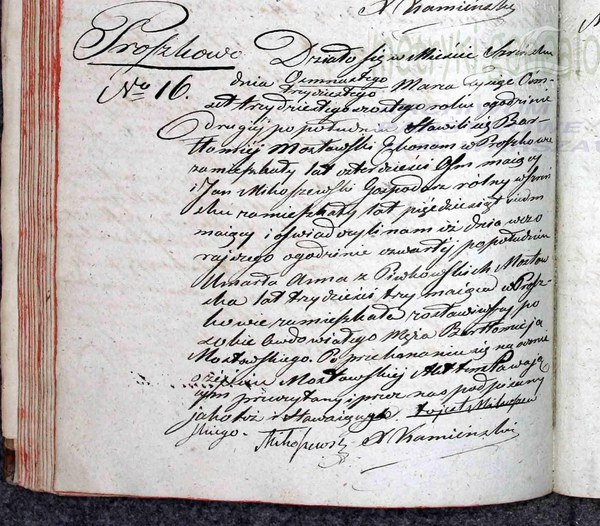 X Kamieński
Proszkowo
No 16.
Działo się w Mieście Szreńsku
dnia Osmnastego
trzydziestego Marca tysiąc Ośm-
set trzydziestego szóstego roku o godzinie
drugiej po południu Stawili się Bar-
tłomiej Mostowski Ekonom w Proszkowie
zamieszkały lat czterdzieści Ośm maiący
i Jan Mikoszewski Gospodarz rolny w Szreń
sku zamieszkały lat pięćdziesiąt siedm
maiący i oświadczyli nam iż dnia wczo
rajszego o godzinie czwartej po południu
Umarła Anna z Piwkowskich Mostow
ska lat trzydzieści trzy maiąca w Prosz-
kowie zamieszkała zostawiwszy po
sobie owdowiałego Męża Bartłomieja
Mostowskiego. Po przekonaniu się naocznie
o zejściu Mostowskiej Akt ten stawają
cym przeczytany i przez nas podpisany
jakoteż i stawaiącego to jest Mikoszew
skiego.
Mikoszewski X Kamieński